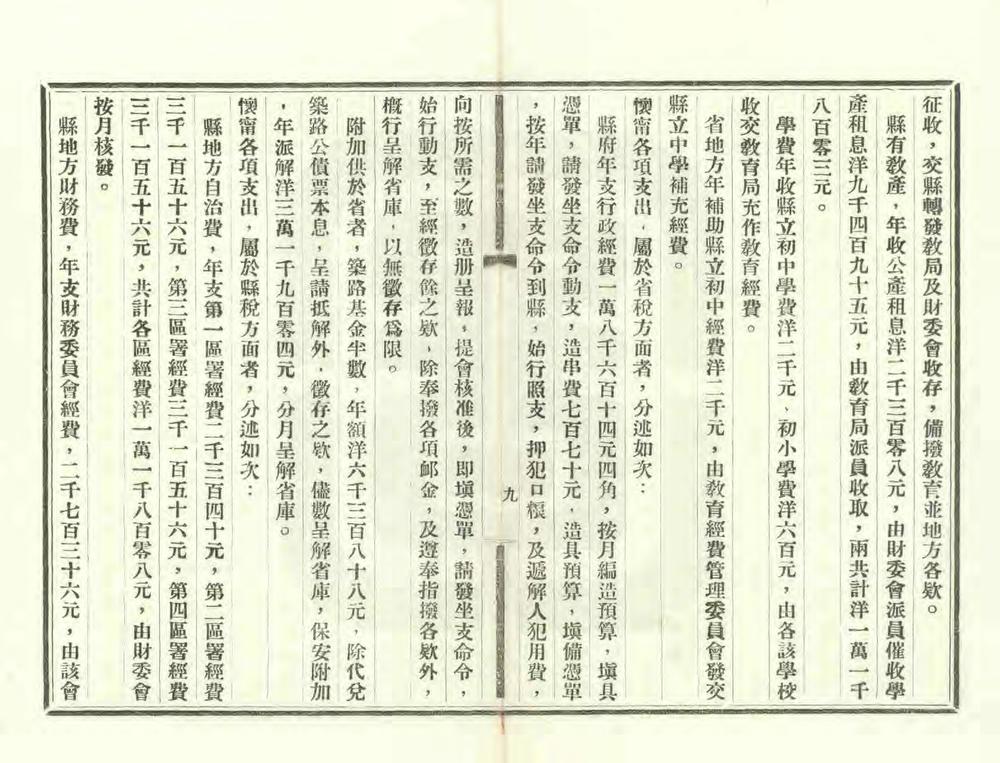 征收，交縣轉發教局及財委會收存，備撥教育並地方各欵。
縣有教產，年收公產租息洋二千三百零八元，由財委會派員催收學
產租息洋九千四百九十五元，由教育局派員收取，兩共計洋一萬一千
八百零三元。
學費年收縣立初中學費洋二千元、初小學費洋六百元，由各該學校
收交敎育局充作敎育經費。
省地方年補助縣立初中經費洋二千元，由教育經費管理委員會發交
縣立中學補充經費。
懷甯各項支出，屬於省稅方面者，分述如次：
縣府年支行政經費一萬八千六百十四元四角，按月編造預算，塡具
憑單，請發坐支命令動支，造串費七百七十元，造具預算，塡備憑單
，按年請發坐支命令到縣，始行照支，押犯口糧，及遞解人犯用費，
九
向按所需之數，造册呈報，提會核准後，即塡憑單，請發坐支命令，
始行動支，至經徵存餘之欵，除奉撥各項卹金，及遵奉指撥各欵外，
概行呈解省庫，以無徵存爲限。
附加供於省者，築路基金半數，年額洋六千三百八十八元，除代兌
築路公債票本息，呈請抵解外，徵存之欵，儘數呈解省庫，保安附加
，年派解洋三萬一千九百零四元，分月呈解省庫。
懷甯各項支出，屬於縣稅方面者，分述如次：
縣地方自治費，年支第一區署經費二千三百四十元，第二區署經費
三千一百五十六元，第三區署經費三千一百五十六元，第四區署經費
三千一百五十六元，共計各區經費洋一萬一千八百零八元，由財委會
按月核發。
縣地方財務費，年支財務委員會經費，二千七百三十六元，由該會